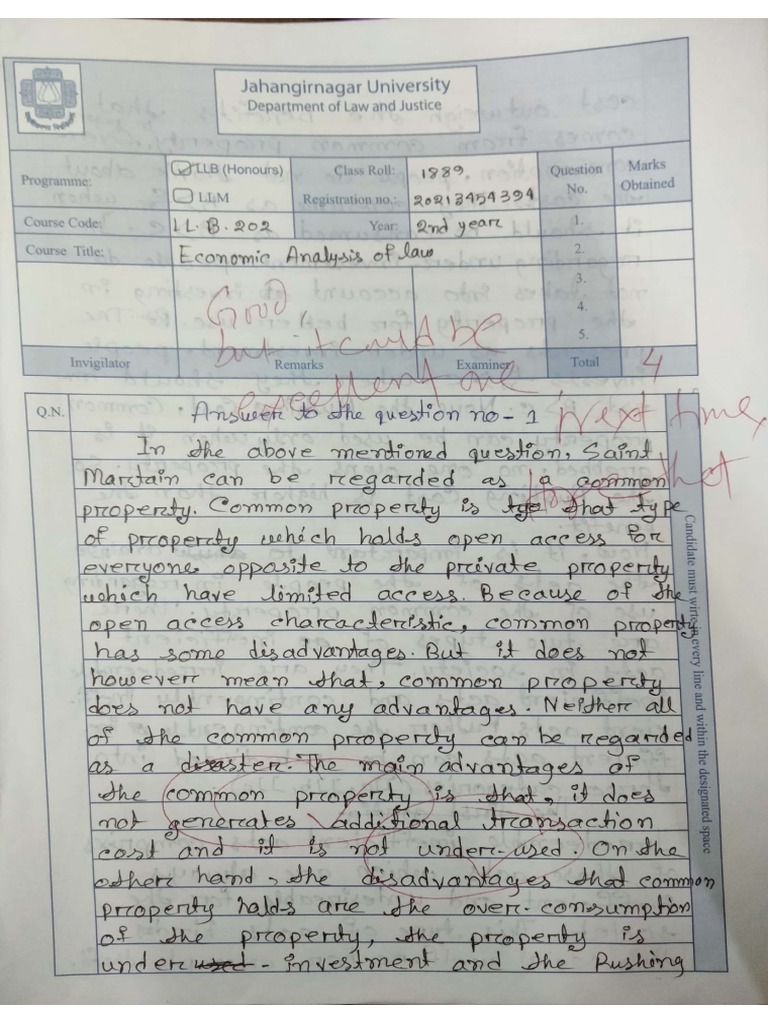 Jahangirnagar University
Department of Law and Justice
Programme: LLB (Honours) LLM
Class Roll: 1889
Registration no.: 20213454394
Question No. Marks Obtained
Course Code: LL.B. 202 Year: 2nd year 1.
Course Title: Economic Analysis of law 2.
3.
4.
5.
Good,
but it could be
excellent one
Next time
Invigilator Remarks Examiner Total 4
Q.N. Answer to the question no - 1
In the above mentioned question, Saint
Martain can be regarded as a common
property. Common property is that type
of property which holds open access for
everyone opposite to the private property
which have limited access. Because of the
open access characteristic, common property
has some disadvantages. But it does not
however mean that, common property
does not have any advantages. Neither all
of the common property can be regarded
as a disaster. The main advantages of
the common property is that, it does
not generates additional transaction
cost and it is not under-used. On the
other hand, the disadvantages that common
property holds are the over-consumption
of the property, the property is
under - investment and the Rushing
Candidate must wirte in every line and within the designated space